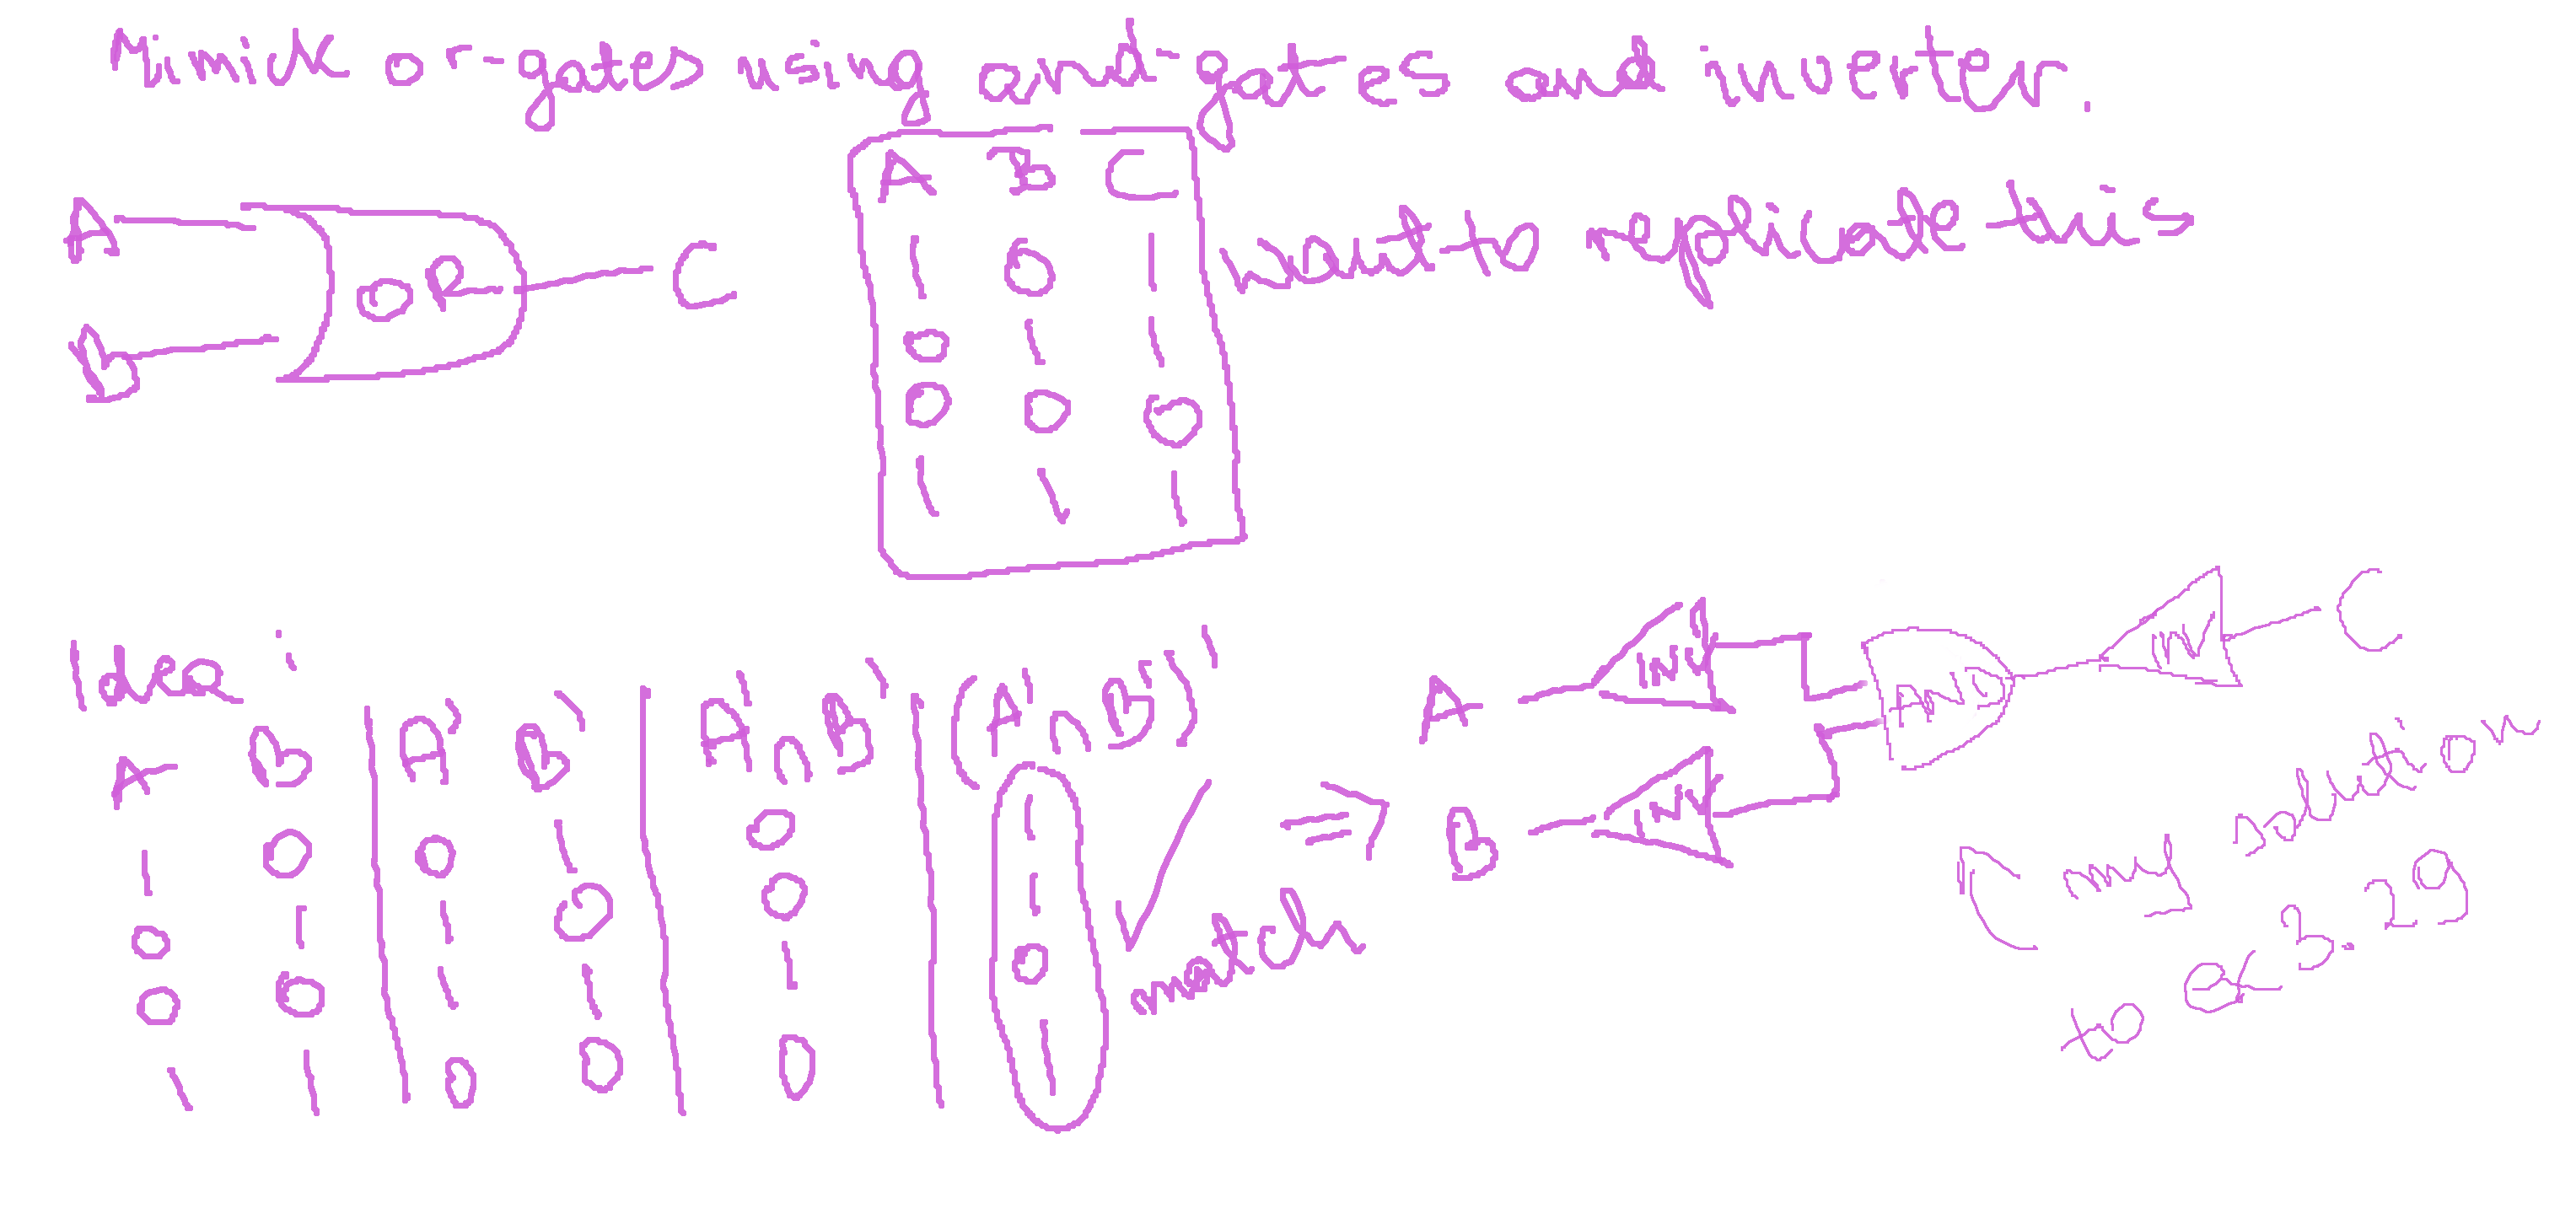 Mimick or-gates using and-gates and inverter.
A B C
A OR C
B
1 0 1 want to replicate this
0 1 1
0 0 0
1 1 1
Idea :
A B A' B' A'∩B' (A'∩B')'
1 0 0 1 0 1
0 1 1 0 0 1
0 0 1 1 1 0
1 1 0 0 0 1
✓ match
⇒
A INV AND INV C
B INV
( my solution
to ex 3.29